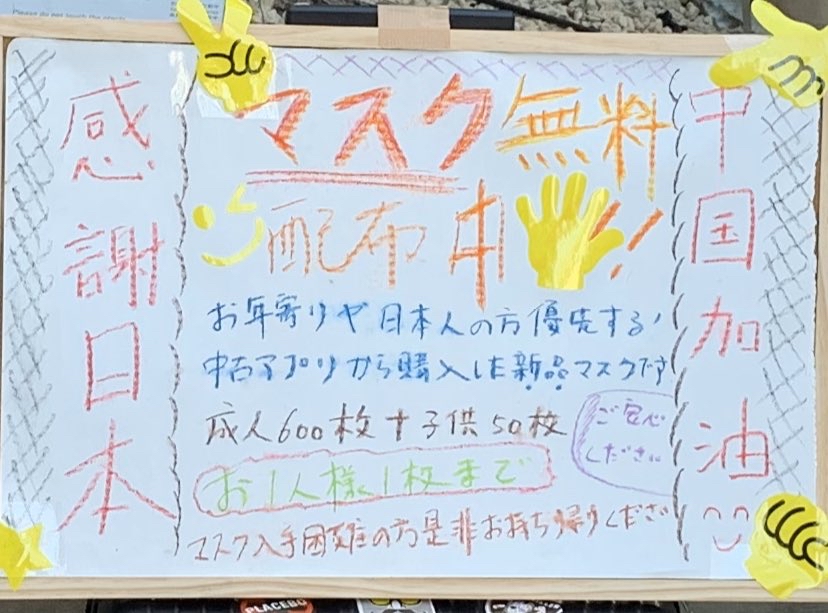 Please do not touch the plants
感謝日本
マスク無料
配布中!!
お年寄りや日本人の方優先する!
中古アプリから購入した新品マスクです
成人600枚+子供50枚
ご安心
ください
お1人様1枚まで
マスク入手困難の方是非お持ち帰りくださ
中国加油
PLACEBO